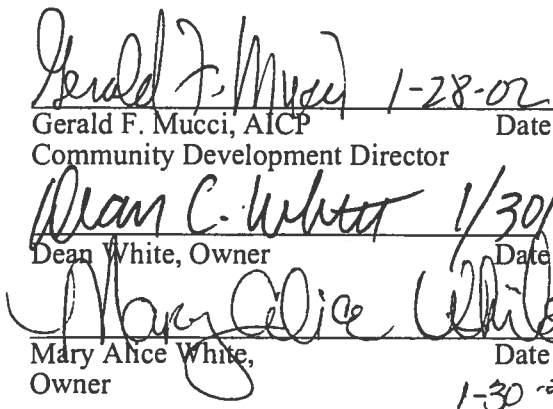 Gerald F. Mucci 1-28-02
Gerald F. Mucci, AICP Date
Community Development Director
Dean C. White 1/30/
Dean White, Owner Date
Mary Alice White
Mary Alice White, Date
Owner
1-30